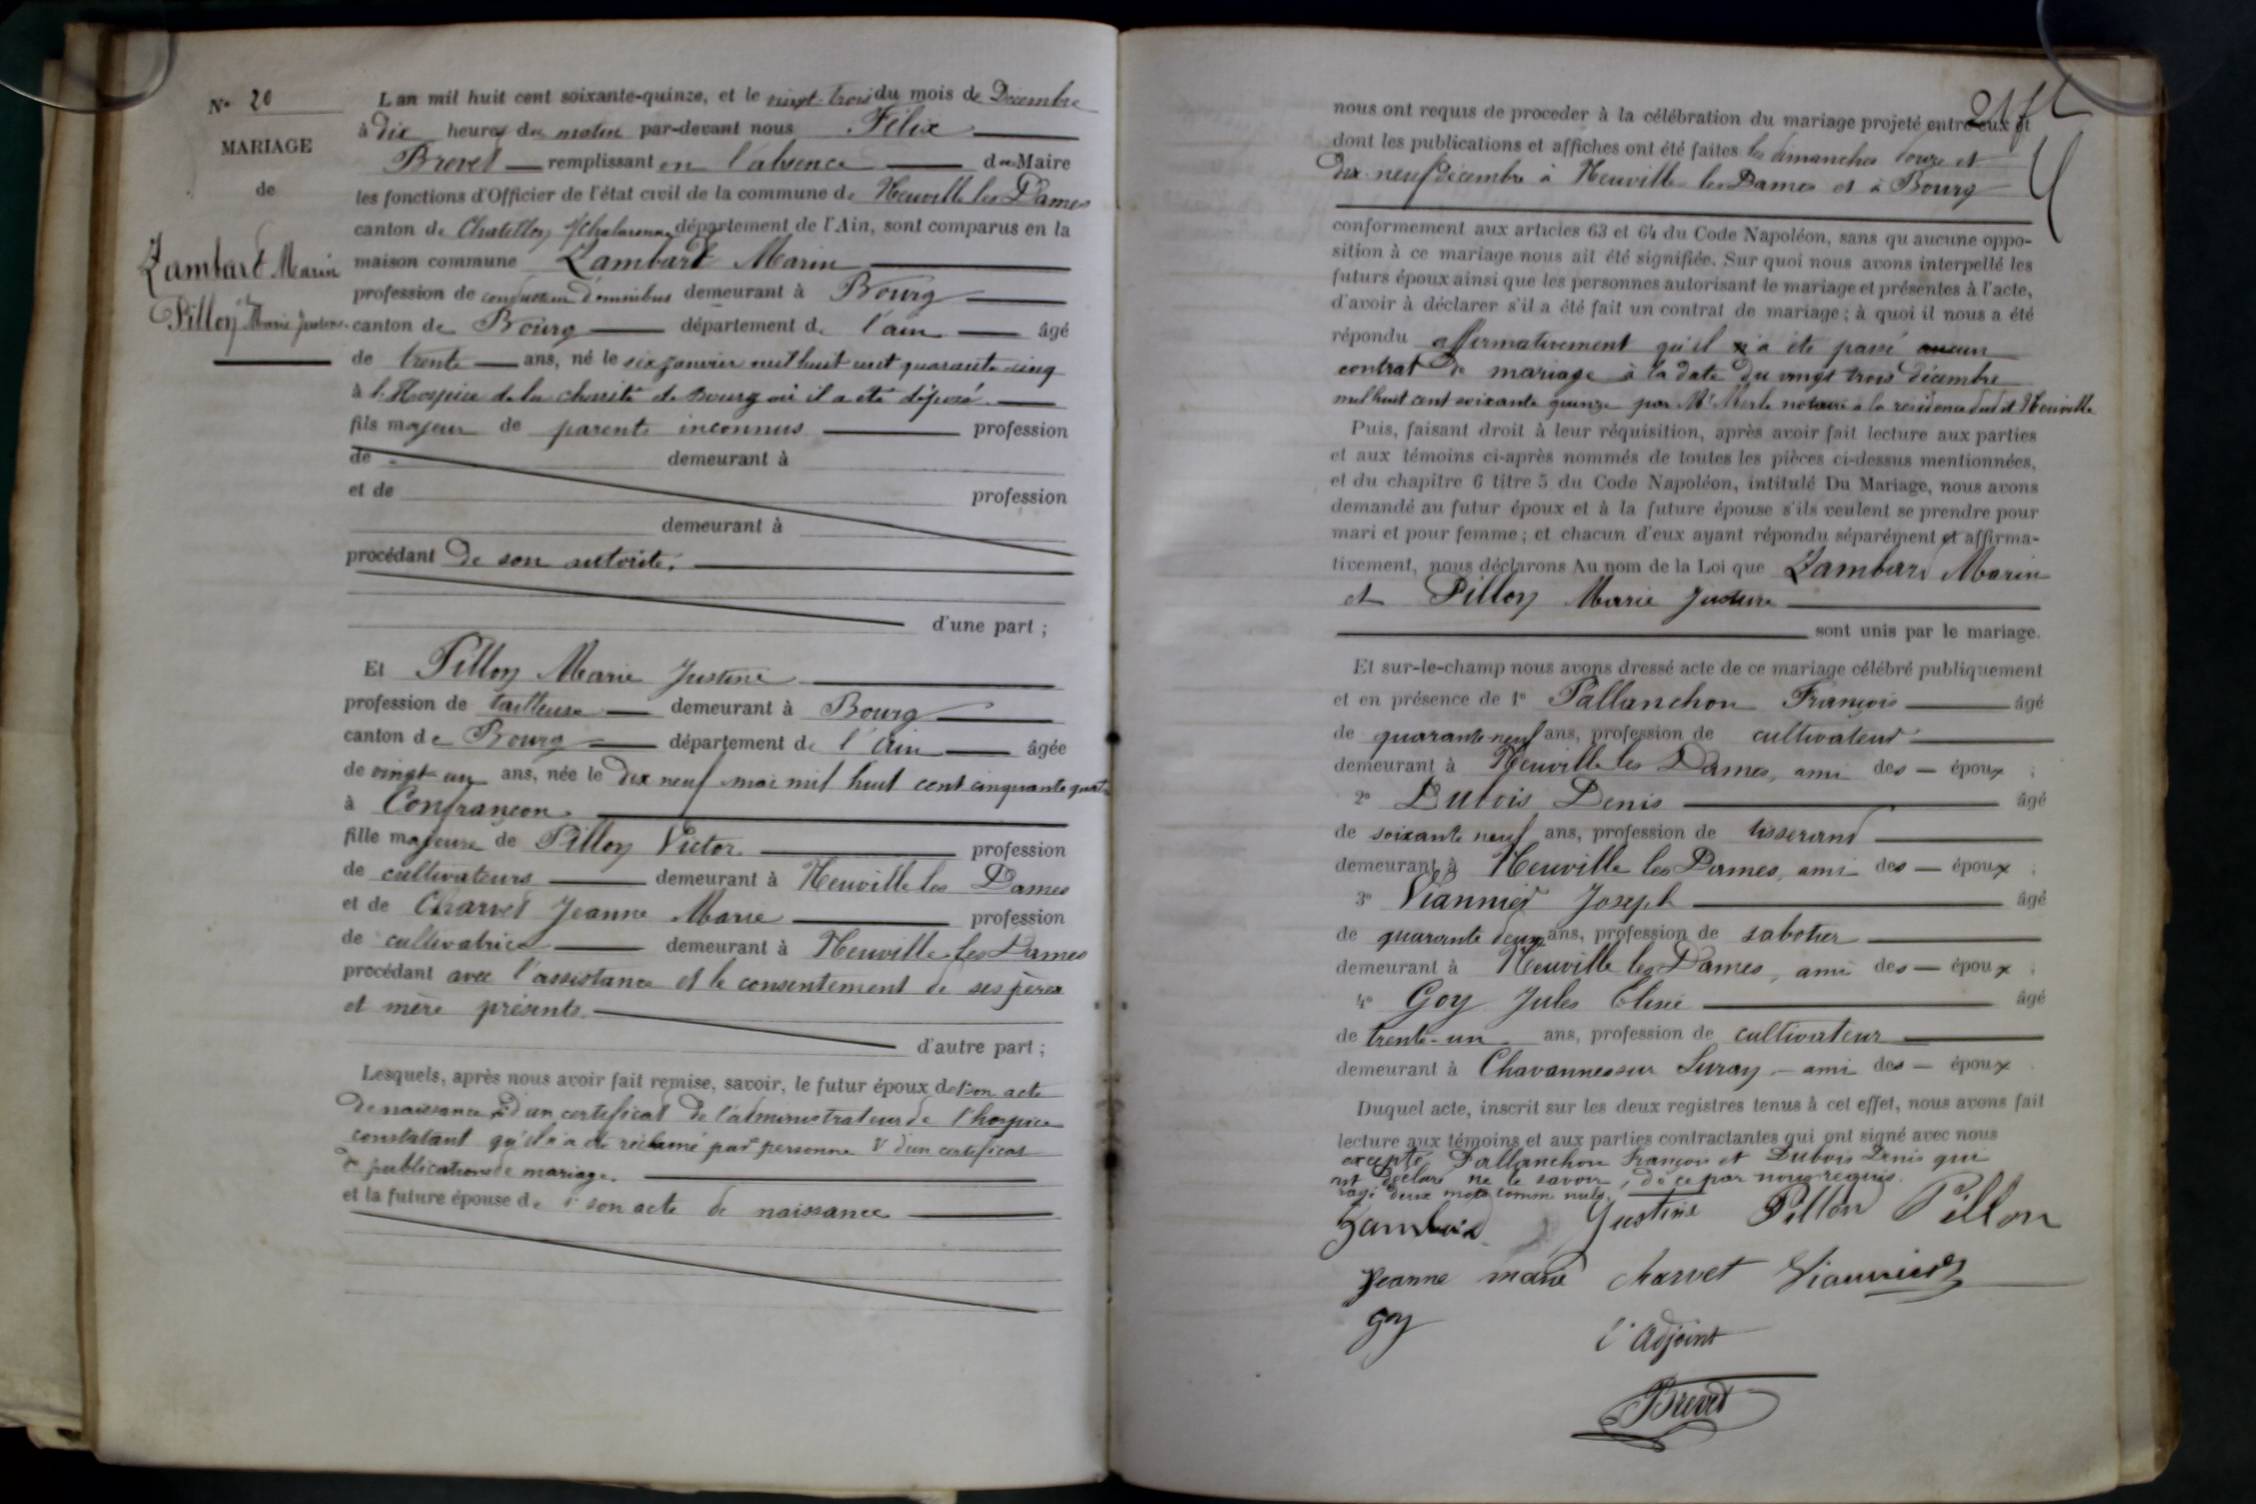 N° 20
MARIAGE
de
Lambard Marin
Pillon Marie Justine
L'an mil huit cent soixante-quinze, et le vingt-trois du mois de Décembre
à dix heures du matin par-devant nous Félix
Brevet remplissant en l'absence du Maire
les fonctions d'Officier de l'état civil de la commune de Neuville les Dames
canton de Chatillon s/ Chalaronne département de l'Ain, sont comparus en la
maison commune Lambard Marin
profession de conducteur d'omnibus demeurant à Bourg
canton de Bourg département de l'ain âgé
de trente ans, né le six janvier mil huit cent quarante cinq
à l'Hospice de la charité de Bourg où il a été déposé.
fils majeur de parents inconnus profession
de demeurant à
et de profession
demeurant à
procédant de son autorité.
d'une part ;
Et Pillon Marie Justine
profession de tailleuse demeurant à Bourg
canton de Bourg département de l'Ain âgée
de vingt-un ans, née le dix neuf mai mil huit cent cinquante quatre
à Confrançon
fille majeure de Pillon Victor profession
de cultivateurs demeurant à Neuville les Dames
et de Charvet Jeanne Marie profession
de cultivatrice demeurant à Neuville les Dames
procédant avec l'assistance et le consentement de ses père
et mère présents.
d'autre part ;
Lesquels, après nous avoir fait remise, savoir, le futur époux de 1° son acte
de naissance 2° d'un certificat de l'administrateur de l'hospice
constatant qu'il n'a été réclamé par personne d'un certificat
de publications de mariage.
et la future épouse de son acte de naissance
21
nous ont requis de proceder à la célébration du mariage projeté entre eux et
dont les publications et affiches ont été faites les dimanches douze et
dix-neuf décembre à Neuville les Dames et à Bourg
conformement aux articles 63 et 64 du Code Napoléon, sans qu'aucune oppo-
sition à ce mariage nous ait été signifiée. Sur quoi nous avons interpellé les
futurs époux ainsi que les personnes autorisant le mariage et présentes à l'acte,
d'avoir à déclarer s'il a été fait un contrat de mariage ; à quoi il nous a été
répondu affirmativement qu'il n'a été passé aucun
contrat de mariage à la date du vingt trois décembre
mil huit cent soixante quinze par Me Merle notaire à la résidence dud Neuville
Puis, faisant droit à leur réquisition, après avoir fait lecture aux parties
et aux témoins ci-après nommés de toutes les pièces ci-dessus mentionnées,
et du chapitre 6 titre 5 du Code Napoléon, intitulé Du Mariage, nous avons
demandé au futur époux et à la future épouse s'ils veulent se prendre pour
mari et pour femme ; et chacun d'eux ayant répondu séparément et affirma-
tivement, nous déclarons Au nom de la Loi que Lambard Marin
et Pillon Marie Justine
sont unis par le mariage.
Et sur-le-champ nous avons dressé acte de ce mariage célébré publiquement
et en présence de 1° Pallanchon François âgé
de quarante-neuf ans, profession de cultivateur
demeurant à Neuville les Dames, ami des époux ;
2° Dubois Denis âgé
de soixante neuf ans, profession de tisserand
demeurant à Neuville les Dames, ami des époux ;
3° Viannier Joseph âgé
de quarante deux ans, profession de sabotier
demeurant à Neuville les Dames, ami des époux ;
4° Goy Jules Elisée âgé
de trente-un ans, profession de cultivateur
demeurant à Chavannes sur Suran ami des époux
Duquel acte, inscrit sur les deux registres tenus à cet effet, nous avons fait
lecture aux témoins et aux parties contractantes qui ont signé avec nous
excepté Pallanchon François et Dubois Denis qui
ont déclaré ne le savoir, de ce par nous requis.
rayé deux mots comme nuls.
Lambard Justine Pillon Pillon
Jeanne marie charvet Viannier
Goy
l'Adjoint
Brevet